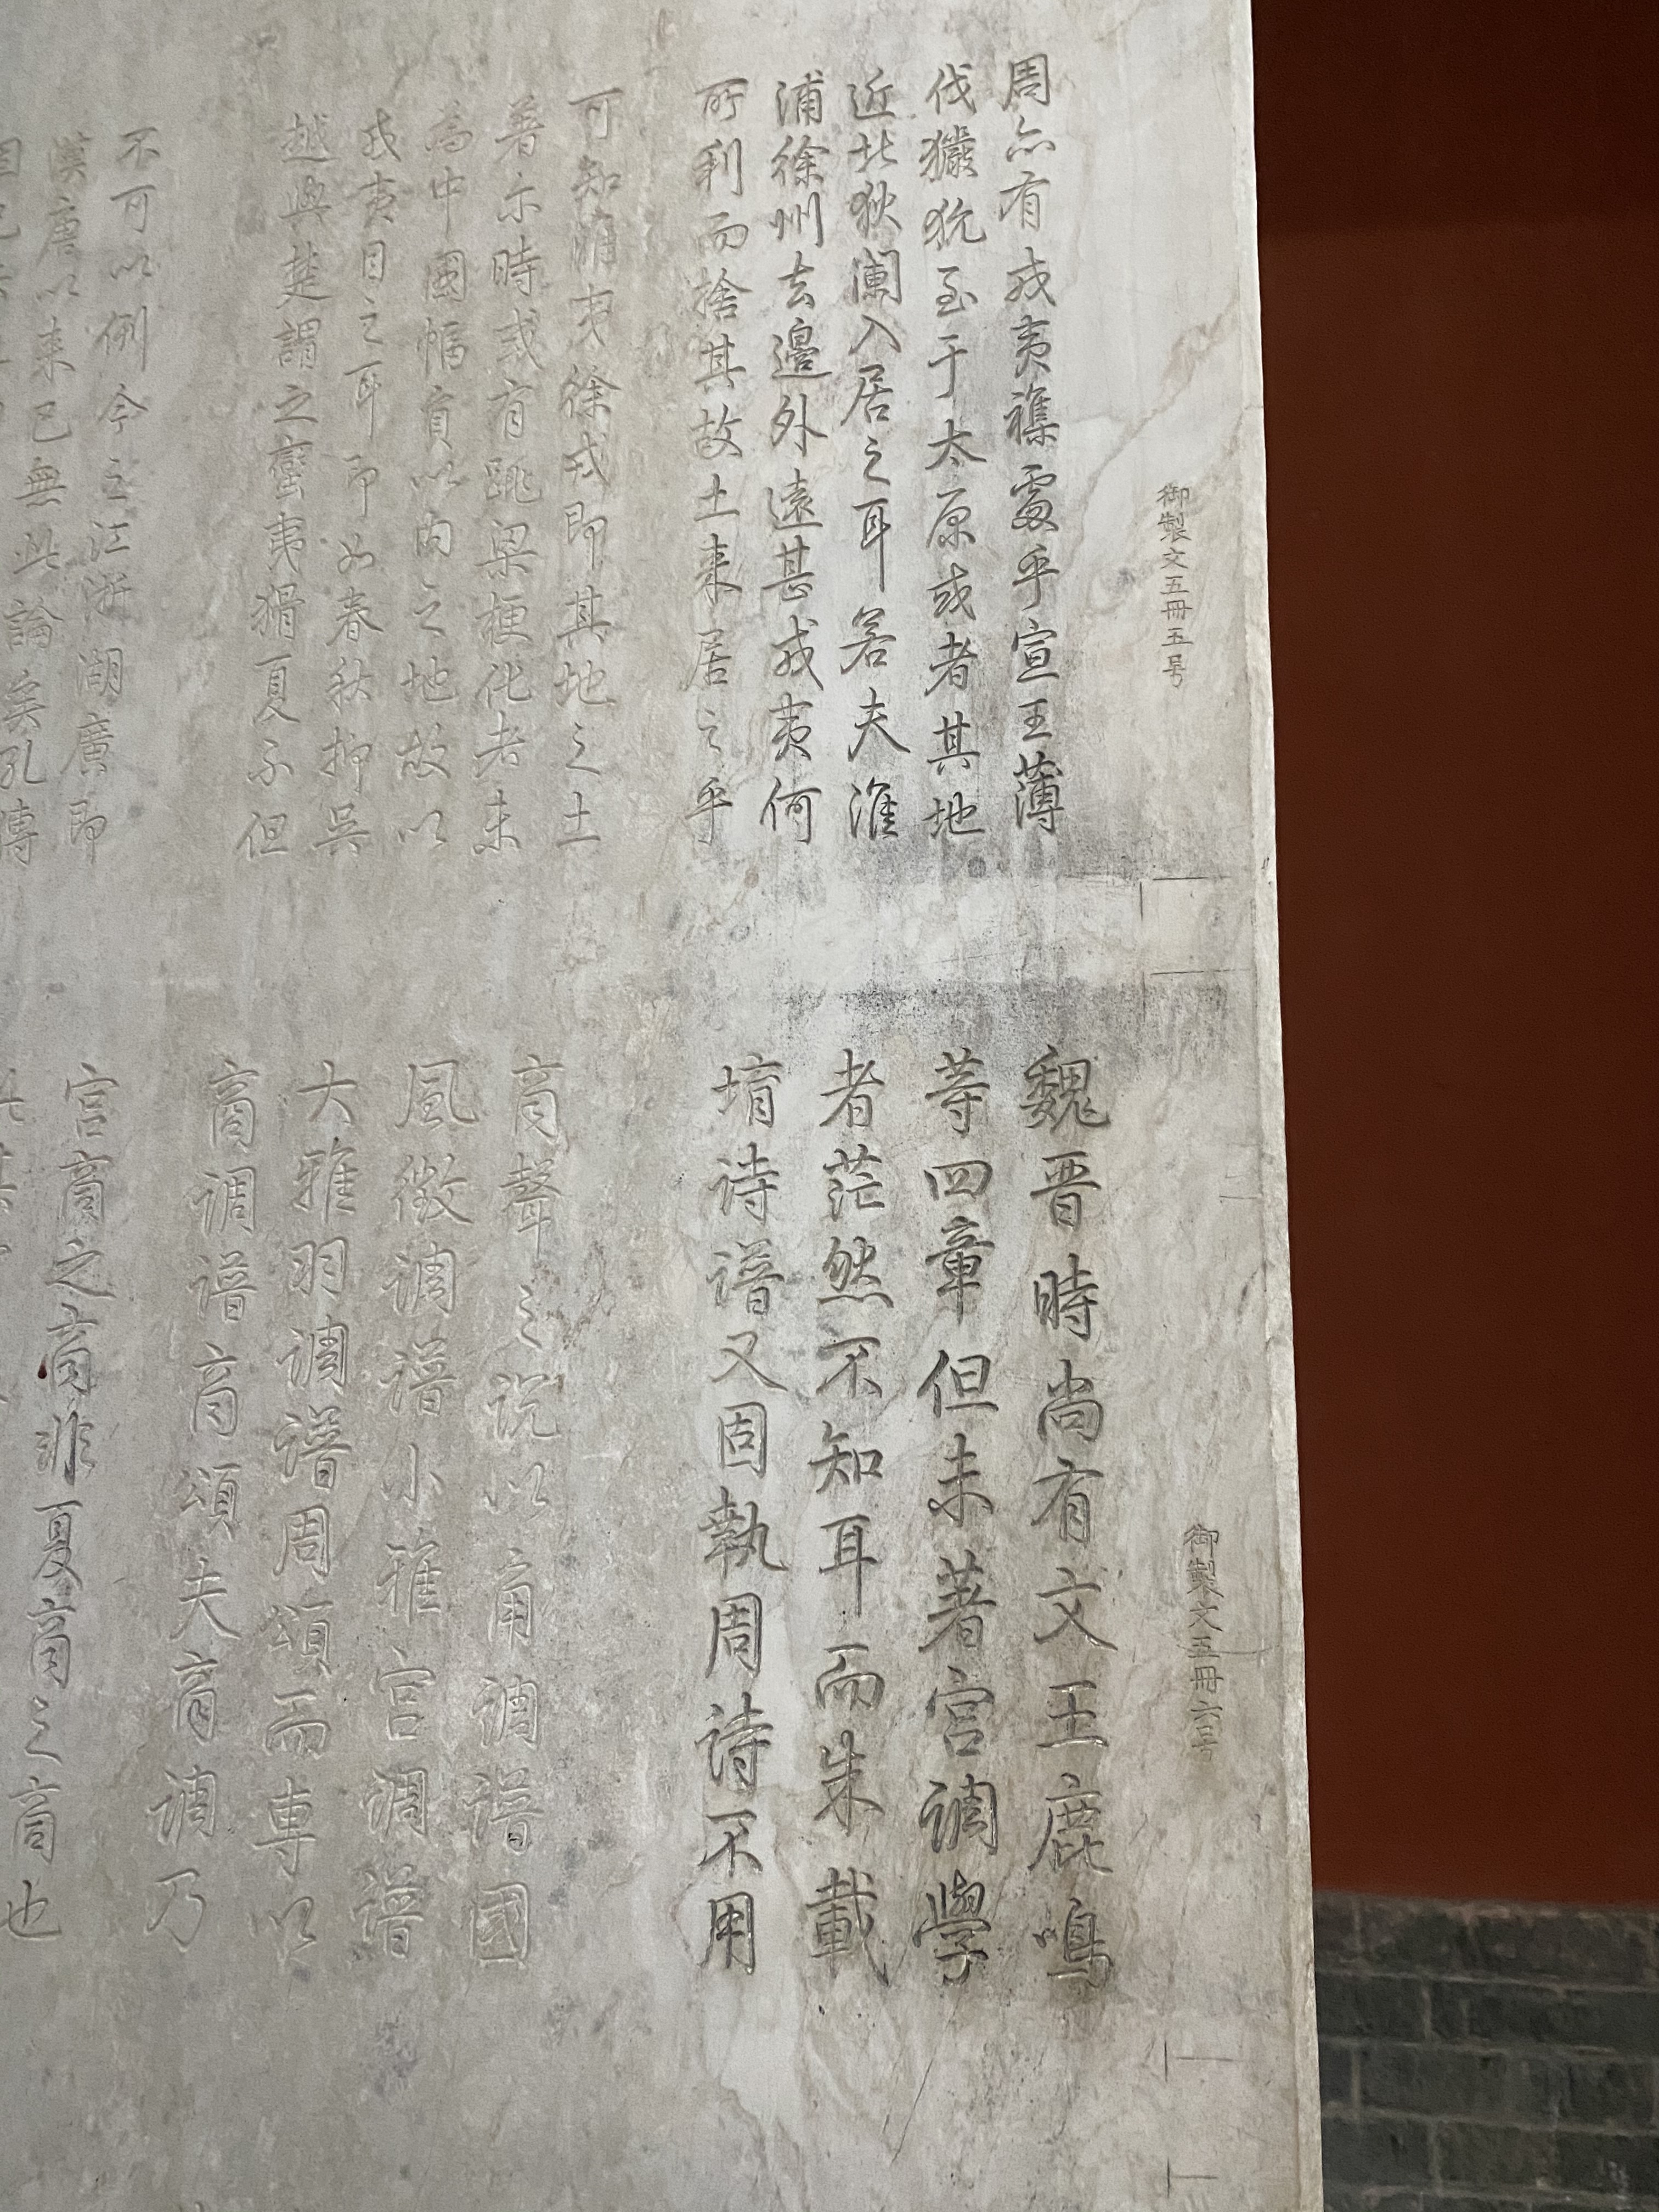 御製文五冊五号
周亦有戎夷襍處乎宣王薄
伐玁狁至于太原或者其地
近北狄闌入居之耳若夫淮
浦徐州去邊外遠甚戎夷何
所利而捨其故土来居之乎
可知淮夷徐戎即其地之土
著尔時或有跳梁梗化者未
為中國幅員以内之地故以
戎夷目之耳即如春秋抑吳
越與楚謂之蠻夷猾夏不但
不可以例今之江浙湖廣即
漢唐以来已無此論矣孔傳
御製文五冊六号
魏晋時尚有文王鹿鳴
等四章但未著宫调學
者茫然不知耳而朱載
堉诗谱又固執周诗不用
商聲之说以角调谱國
風徵调谱小雅宫调谱
大雅羽调谱周頌而専以
商调谱商頌夫商调乃
宫商之商非夏商之商也